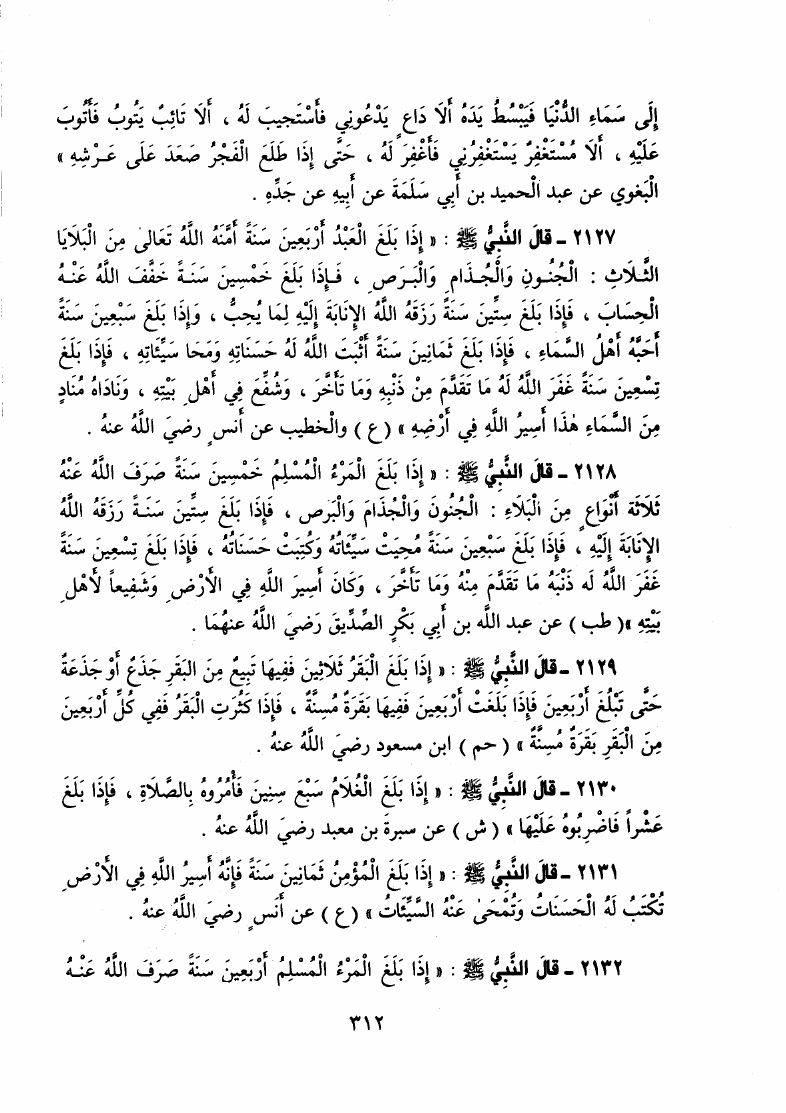 إِلَى سَمَاءِ الدُّنْيَا فَيَبْسُطُ يَدَهُ أَلَا دَاعٍ يَدْعُونِي فَأَسْتَجِيبَ لَهُ ، أَلَا تَائِبٌ يَتُوبُ فَأَتُوبَ
عَلَيْهِ ، أَلَا مُسْتَغْفِرٌ يَسْتَغْفِرُنِي فَأَغْفِرَ لَهُ ، حَتَّى إِذَا طَلَعَ الْفَجْرُ صَعَدَ عَلَى عَرْشِهِ »
الْبَغوي عن عبد الْحميد بن أَبي سَلَمَةَ عن أَبيه عن جَدِّهِ .
٢١٢٧ ـ قالَ النَّبِيُّ ﷺ : « إِذَا بَلَغَ الْعَبْدُ أَرْبَعِينَ سَنَةً أَمَّنَهُ اللَّهُ تَعَالى مِنَ الْبَلَايَا
الثَّلَاثِ : الْجُنُونِ وَالْجُذَامِ وَالْبَرَصِ ، فَإِذَا بَلَغَ خَمْسِينَ سَنَةً خَفَّفَ اللَّهُ عَنْهُ
الْحِسَابَ ، فَإِذَا بَلَغَ سِتِّينَ سَنَةً رَزَقَهُ اللَّهُ الإِنَابَةَ إِلَيْهِ لِمَا يُحِبُّ ، وَإِذَا بَلَغَ سَبْعِينَ سَنَةً
أَحَبَّهُ أَهْلُ السَّمَاءِ ، فَإِذَا بَلَغَ ثَمَانِينَ سَنَةً أَثْبَتَ اللَّهُ لَهُ حَسَنَاتِهِ وَمَحَا سَيِّئَاتِهِ ، فَإِذَا بَلَغَ
تِسْعِينَ سَنَةً غَفَرَ اللَّهُ لَهُ مَا تَقَدَّمَ مِنْ ذَنْبِهِ وَمَا تَأَخَّرَ ، وَشُفِّعَ فِي أَهْلِ بَيْتِهِ ، وَنَادَاهُ مُنَادٍ
مِنَ السَّمَاءِ هٰذَا أَسِيرُ اللَّهِ فِي أَرْضِهِ » ( ع ) والْخطيب عن أَنس رضيَ اللَّهُ عنهُ .
٢١٢٨ ـ قالَ النَّبِيُّ ﷺ : « إِذَا بَلَغَ الْمَرْءُ الْمُسْلِمُ خَمْسِينَ سَنَةً صَرَفَ اللَّهُ عَنْهُ
ثَلَاثَةَ أَنْوَاعٍ مِنَ الْبَلَاءِ : الْجُنُونَ وَالْجُذَامَ وَالْبَرَص ، فَإِذَا بَلَغَ سِتِّينَ سَنَةً رَزَقَهُ اللَّهُ
الإِنَابَةَ إِلَيْهِ ، فَإِذَا بَلَغَ سَبْعِينَ سَنَةً مُحِيَتْ سَيِّئَاتُهُ وَكُتِبَتْ حَسَنَاتُهُ ، فَإِذَا بَلَغَ تِسْعِينَ سَنَةً
غَفَرَ اللَّهُ لَه ذَنْبَهُ مَا تَقَدَّمَ مِنْهُ وَمَا تَأَخَّرَ ، وَكَانَ أَسِيرَ اللَّهِ فِي الأَرْضِ وَشَفِيعاً لأَهْلِ
بَيْتِهِ »( طب ) عن عبد اللَّه بن أَبِي بَكْرٍ الصِّدِّيق رَضيَ اللَّهُ عنهُمَا .
٢١٢٩ ـ قالَ النَّبِيُّ ﷺ : « إِذَا بَلَغَ الْبَقَرُ ثَلَاثِينَ فَفِيهَا تَبِيعٌ مِنَ الْبَقَرِ جَذَعٌ أَوْ جَذَعَةٌ
حَتَّى تَبْلُغَ أَرْبَعِينَ فَإِذَا بَلَغَتْ أَرْبَعِينَ فَفِيهَا بَقَرَةٌ مُسِنَّةٌ ، فَإِذَا كَثُرَتِ الْبَقَرُ فَفِي كُلِّ أَرْبَعِينَ
مِنَ الْبَقَرِ بَقَرَةٌ مُسِنَّةٌ » ( حم ) ابن مسعود رضيَ اللَّهُ عنهُ .
٢١٣٠ ـ قالَ النَّبِيُّ ﷺ : « إِذَا بَلَغَ الْغُلَامُ سَبْعَ سِنِينَ فَأْمُرُوهُ بِالصَّلَاةِ ، فَإِذَا بَلَغَ
عَشْراً فَاضْرِبُوهُ عَلَيْهَا » ( ش ) عن سبرة بن معبد رضيَ اللَّهُ عنهُ .
٢١٣١ ـ قالَ النَّبِيُّ ﷺ : « إِذَا بَلَغَ الْمُؤْمِنُ ثَمَانِينَ سَنَةً فَإِنَّهُ أَسِيرُ اللَّهِ فِي الأَرْضِ
تُكْتَبُ لَهُ الْحَسَنَاتُ وَتُمْحَى عَنْهُ السَّيِّئَاتُ » ( ع ) عن أَنس رضيَ اللَّهُ عنهُ .
٢١٣٢ ـ قالَ النَّبِيُّ ﷺ : « إِذَا بَلَغَ الْمَرْءُ الْمُسْلِمُ أَرْبَعِينَ سَنَةً صَرَفَ اللَّهُ عَنْهُ
٣١٢